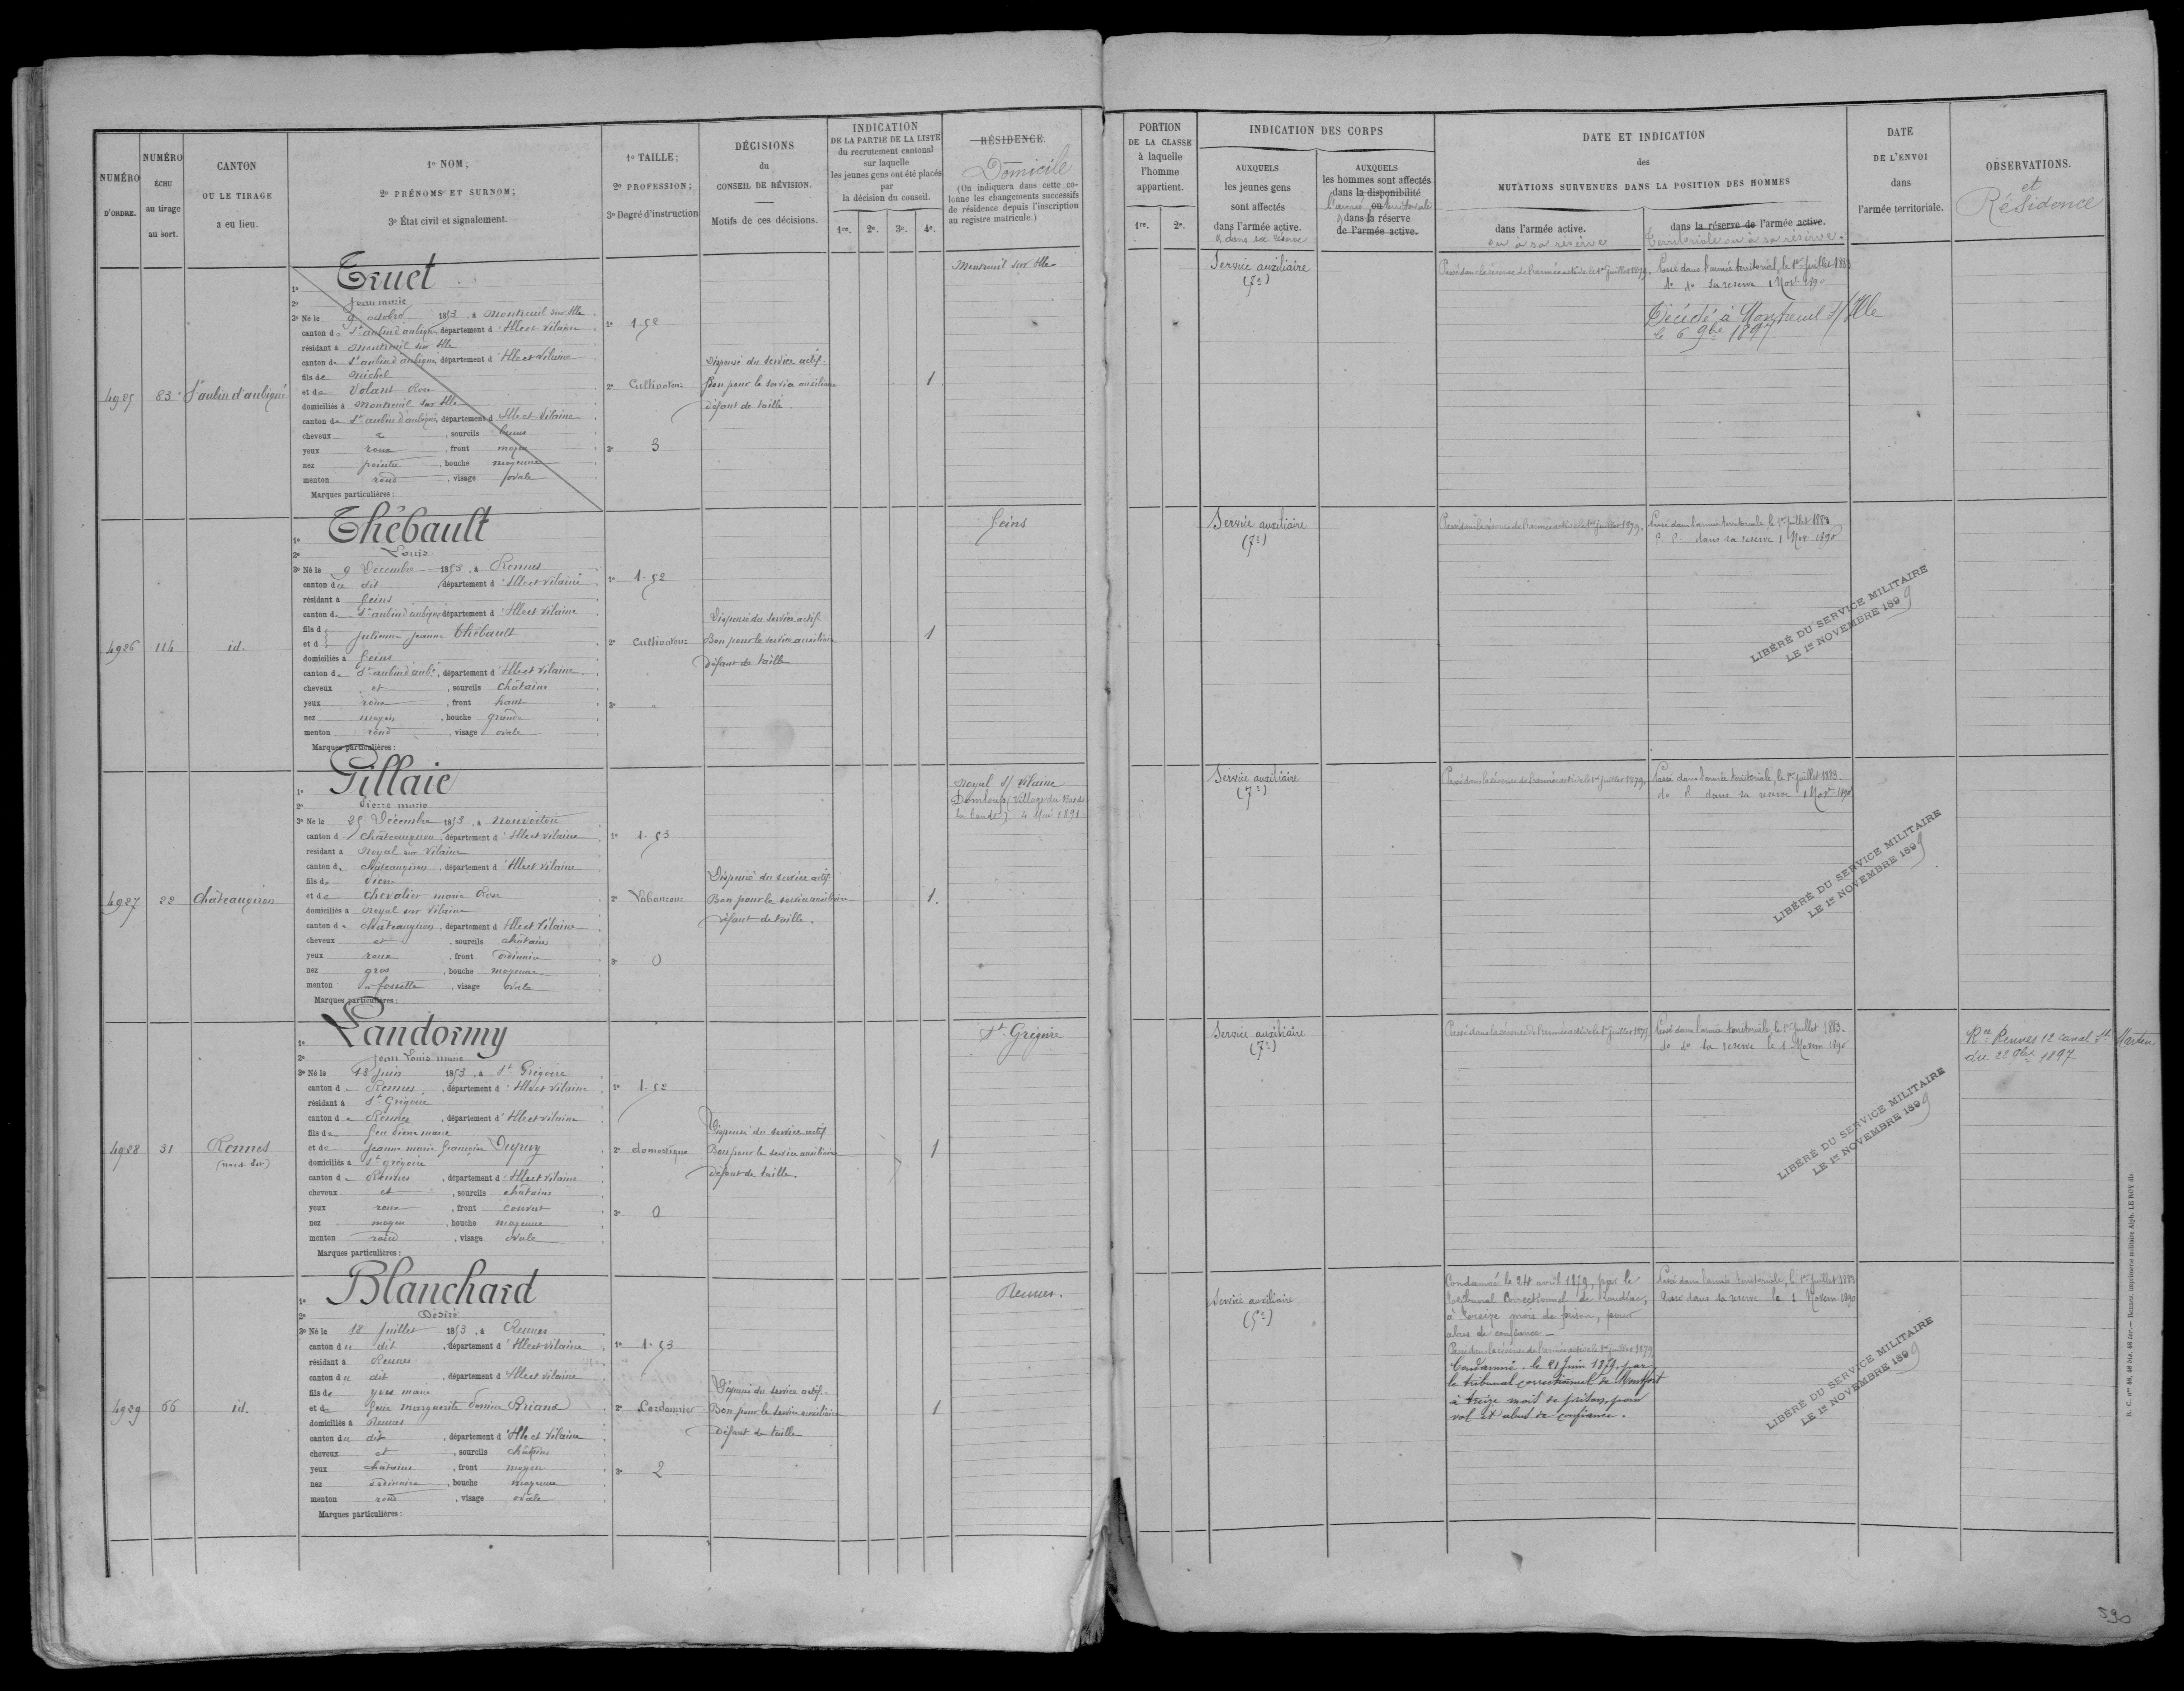 NUMÉRO D'ORDRE.
NUMÉRO ÉCHU au tirage au sort.
CANTON OU LE TIRAGE a eu lieu.
1º NOM;
2º PRÉNOMS ET SURNOM;
3º État civil et signalement.
1º TAILLE;
2º PROFESSION;
3º Degré d'instruction
DÉCISIONS
du
CONSEIL DE RÉVISION.
Motifs de ces décisions.
INDICATION
DE LA PARTIE DE LA LISTE
du recrutement cantonal
sur laquelle
les jeunes gens ont été placés
par
la décision du conseil.
1re. 2e. 3e. 4e.
RÉSIDENCE.
Domicile
(On indiquera dans cette co-
lonne les changements successifs
de résidence depuis l'inscription
au registre matricule.)
PORTION
DE LA CLASSE
à laquelle
l'homme
appartient.
1re. 2e.
INDICATION DES CORPS
AUXQUELS
les jeunes gens
sont affectés
dans l'armée active.
& dans sa réserve
AUXQUELS
les hommes sont affectés
dans la disponibilité
ou
l'armée territoriale
& dans la réserve
de l'armée active.
DATE ET INDICATION
des
MUTATIONS SURVENUES DANS LA POSITION DES HOMMES
dans l'armée active.
ou à sa réserve
dans la réserve de l'armée active.
Territoriale ou à sa réserve.
DATE
DE L'ENVOI
dans
l'armée territoriale.
OBSERVATIONS.
et
Résidence
4925
83
St aubin d'aubigné
1º Truet
2º Jean marie
3º Né le 9 octobre 1853, à Montreuil sur Ille
canton de St aubin d'aubigné, département d'Ille et Vilaine
résidant à Montreuil sur Ille
canton de St aubin d'aubigné, département d'Ille et Vilaine
fils de Michel
et de Volant Rose
domiciliés à Montreuil sur Ille
canton de St aubin d'aubigné, département d'Ille et Vilaine
cheveux et, sourcils bruns
yeux roux, front moyen
nez pointu, bouche moyenne
menton rond, visage ovale
Marques particulières:
1º 1.52
2º Cultivateur
3º 3
Dispensé du service actif.
Bon pour le service auxiliaire
défaut de taille.
1
Montreuil sur Ille
Service auxiliaire
(7e)
Passé dans la réserve de l'armée active le 1er Juillet 1879.
Passé dans l'armée territorial, le 1er Juillet 1883
do do sa reserve 1 Nov. 1890
Décédé à Montreuil s/ Ille
le 6 9bre 1897
4926
114
id.
1º Thébault
2º Louis
3º Né le 9 Décembre 1853, à Rennes
canton du dit, département d'Ille et Vilaine
résidant à Feins
canton de St aubin d'aubigné, département d'Ille et Vilaine
fils d
et d Julienne Jeanne Thébault
domiciliés à Feins
canton de St aubin d'aubé, département d'Ille et Vilaine
cheveux et, sourcils châtains
yeux roux, front haut
nez moyen, bouche grande
menton rond, visage ovale
Marques particulières:
1º 1.52
2º Cultivateur
3º
Dispensé du service actif.
Bon pour le service auxiliaire
défaut de taille
1
Feins
Service auxiliaire
(7e)
Passé dans la réserve de l'armée active le 1er Juillet 1879.
Passé dans l'armée territoriale, le 1er Juillet 1883
dans sa reserve 1 Nov. 1890
LIBÉRÉ DU SERVICE MILITAIRE
LE 1er NOVEMBRE 1899
4927
22
Châteaugiron
1º Pillaie
2º Pierre marie
3º Né le 25 Décembre 1853, à Nouvoitou
canton d Châteaugiron, département d'Ille et Vilaine
résidant à Noyal sur Vilaine
canton de Châteaugiron, département d'Ille et Vilaine
fils de Pierre
et de Chevalier marie Rose
domiciliés à Noyal sur Vilaine
canton de Châteaugiron, département d'Ille et Vilaine
cheveux et, sourcils châtains
yeux roux, front ordinaire
nez gros, bouche moyenne
menton à fossette, visage ovale
Marques particulières:
1º 1.53
2º Laboureur
3º 0
Dispensé du service actif.
Bon pour le service auxiliaire
défaut de taille.
1.
Noyal s/ Vilaine
Domloup (Village du Bas de
la lande) 4 Mai 1891
Service auxiliaire
(7e)
Passé dans la réserve de l'armée active le 1er Juillet 1879.
Passé dans l'armée territoriale, le 1er Juillet 1883.
do do dans sa reserve 1 Nov. 1890
LIBÉRÉ DU SERVICE MILITAIRE
LE 1er NOVEMBRE 1899
4928
31
Rennes
1º Landormy
2º Jean Louis marie
3º Né le 13 Juin 1853, à St Grégoire
canton de Rennes, département d'Ille et Vilaine
résidant à St Grégoire
canton de Rennes, département d'Ille et Vilaine
fils de feu Pierre marie
et de Jeanne marie françoise Dupuy
domiciliés à St grégoire
canton de Rennes, département d'Ille et Vilaine
cheveux et, sourcils châtains
yeux roux, front couvert
nez moyen, bouche moyenne
menton rond, visage ovale
Marques particulières:
1º 1.52
2º domestique
3º 0
Dispensé du service actif
Bon pour le service auxiliaire
défaut de taille.
1
St. Grégoire
Service auxiliaire
(7e)
Passé dans la réserve de l'armée active le 1er Juillet 1879
Passé dans l'armée territoriale, le 1er Juillet 1883.
do do sa reserve le 1 Novem 1890
Rce Rennes 12 canal St. Martin
du 22 9bre 1897
LIBÉRÉ DU SERVICE MILITAIRE
LE 1er NOVEMBRE 1899
4929
66
id.
1º Blanchard
2º Désiré
3º Né le 18 Juillet 1853, à Rennes
canton du dit, département d'Ille et Vilaine
résidant à Rennes
canton du dit, département d'Ille et Vilaine
fils de yves marie
et de feue marguerite Briand
domiciliés à Rennes
canton du dit, département d'Ille et Vilaine
cheveux et, sourcils châtains
yeux châtains, front moyen
nez ordinaire, bouche moyenne
menton rond, visage ovale
Marques particulières:
1º 1.53
2º Cordonnier
3º 2
Dispensé du service actif.
Bon pour le service auxiliaire
défaut de taille
1
Rennes.
Service auxiliaire
(5e)
Condamné le 24 avril 1879, par le
Tribunal Correctionnel de Loudéac,
à treize mois de prison, pour
abus de confiance —
Passé dans la réserve de l'armée active le 1er Juillet 1879
Condamné le 21 Juin 1879 par
le tribunal correctionnel de Montfort
à treize mois de prison, pour
vol et abus de confiance.
Passé dans l'armée territoriale, le 1er Juillet 1883
Passé dans sa reserve le 1 Novem. 1890
LIBÉRÉ DU SERVICE MILITAIRE
LE 1er NOVEMBRE 1899
R. C. nos 48, 48 bis, 48 ter. — Rennes, imprimerie militaire Alph. LE ROY fils
590